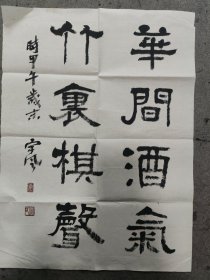 華間酒氣
竹裏棋聲
時甲午歲末